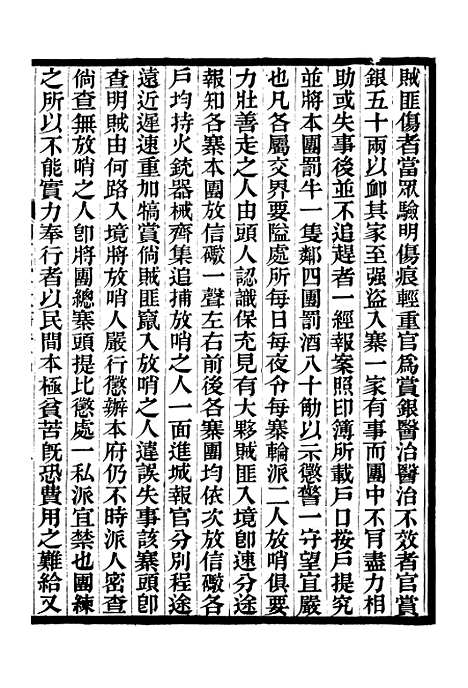 賊匪傷者當眾驗明傷痕輕重官爲賞銀醫治醫治不效者官賞
銀五十兩以卹其家至强盜入寨一家有事而團中不肎盡力相
助或失事後並不追趕者一經報案照印簿所載戶口按戶提究
並將本團罰牛一隻鄰四團罰酒八十觔以示懲警一守望宜嚴
也凡各屬交界要隘處所每日每夜令每寨輪派二人放哨俱要
力壯善走之人由頭人認識保充見有大夥賊匪入境卽速分途
報知各寨本團放信礮一聲左右前後各寨團均依次放信礮各
戶均持火銃器械齊集追捕放哨之人一面進城報官分別程途
遠近遲速重加犒賞倘賊匪竄入放哨之人違誤失事該寨頭卽
查明賊由何路入境將放哨人嚴行懲辦本府仍不時派人密查
倘查無放哨之人卽將團總寨頭提比懲處一私派宜禁也團練
之所以不能實力奉行者以民間本極貧苦旣恐費用之難給又